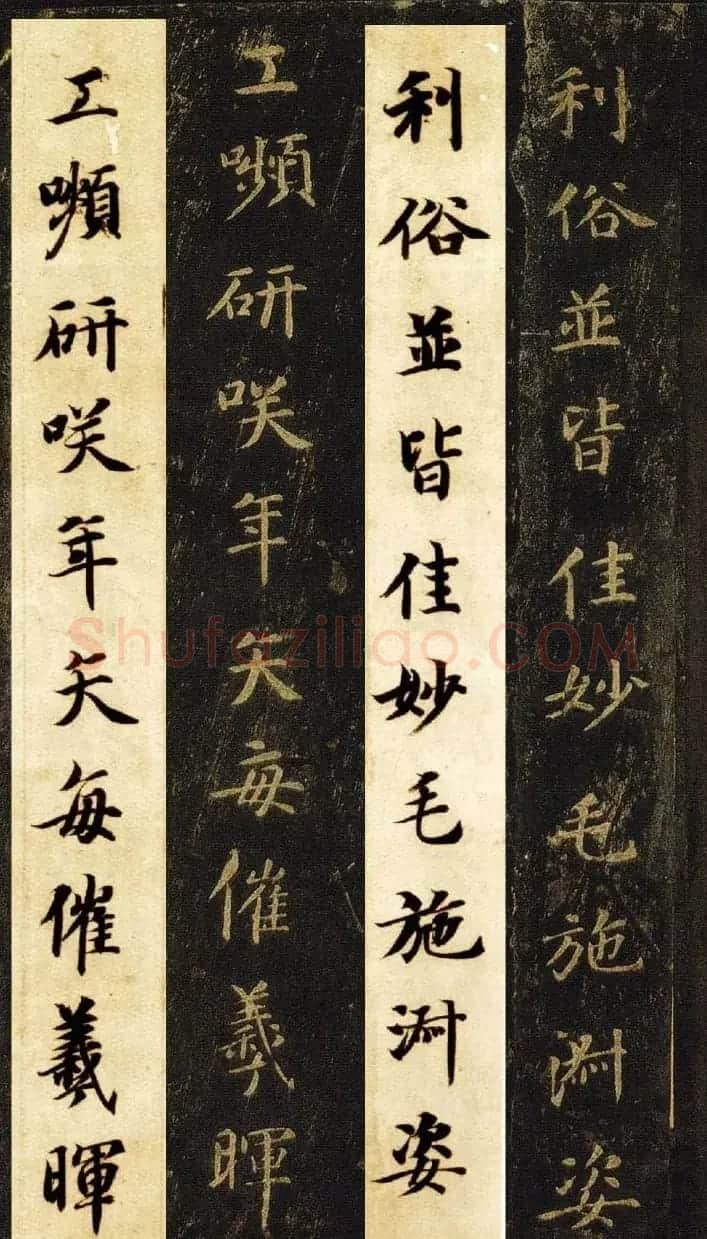 利俗並皆佳妙毛施淑姿
利俗並皆佳妙毛施淑姿
工嚬研咲年矢每催羲暉
工嚬研咲年矢每催羲暉
Shufaziliao.COM